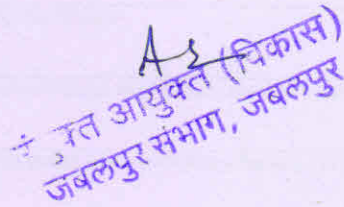 आयुक्त (विकास)
जबलपुर संभाग, जबलपुर